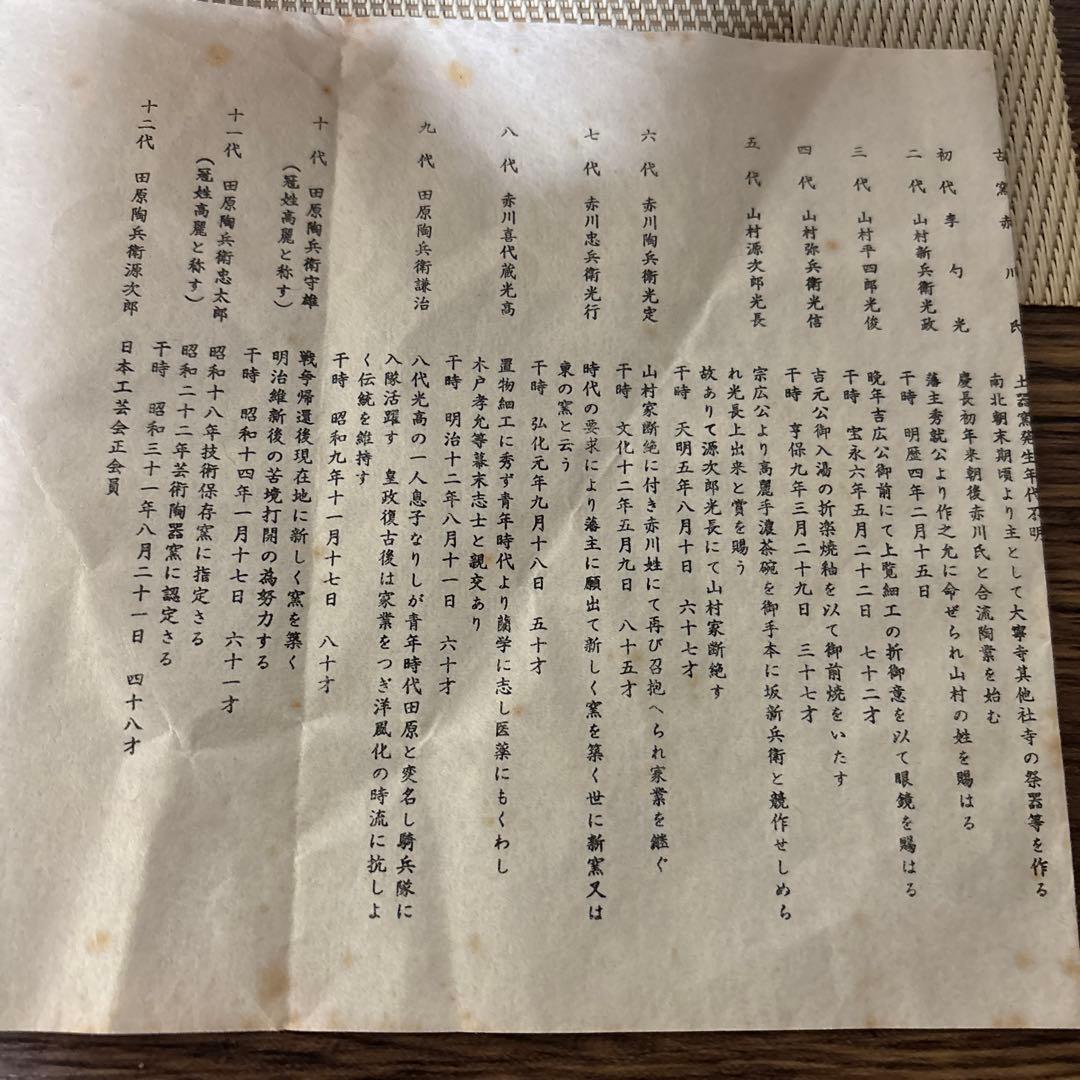 古窯赤川氏 土器窯発生年代不明
南北朝末期頃より主として大寧寺其他社寺の祭器等を作る
初代 李勺光 慶長初年来朝後赤川氏と合流陶業を始む
二代 山村新兵衛光政 藩主秀就公より作之允に命ぜられ山村の姓を賜はる
干時 明歴四年二月十五日
三代 山村平四郎光俊 晩年吉広公御前にて上覧細工の折御意を以て眼鏡を賜はる
干時 宝永六年五月二十二日 七十二才
四代 山村弥兵衛光信 吉元公御入湯の折楽焼釉を以て御前焼をいたす
干時 享保九年三月二十九日 三十七才
五代 山村源次郎光長 宗広公より高麗手濃茶碗を御手本に坂新兵衛と競作せしめら
れ光長上出来と賞を賜う
故ありて源次郎光長にて山村家断絶す
干時 天明五年八月十日 六十七才
六代 赤川陶兵衛光定 山村家断絶に付き赤川姓にて再び召抱へられ家業を継ぐ
干時 文化十二年五月九日 八十五才
七代 赤川忠兵衛光行 時代の要求により藩主に願出て新しく窯を築く世に新窯又は
東の窯と云う
干時 弘化元年九月十八日 五十才
八代 赤川喜代蔵光高 置物細工に秀ず青年時代より蘭学に志し医薬にもくわし
木戸孝允等幕末志士と親交あり
干時 明治十二年八月十一日 六十才
九代 田原陶兵衛謙治 八代光高の一人息子なりしが青年時代田原と変名し騎兵隊に
入隊活躍す 皇政復古後は家業をつぎ洋風化の時流に抗しよ
く伝統を維持す
干時 昭和九年十一月十七日 八十才
十代 田原陶兵衛守雄 戦争帰還後現在地に新しく窯を築く
(冠姓高麗と称す) 明治維新後の苦境打開の為努力する
干時 昭和十四年一月十七日 六十一才
十一代 田原陶兵衛忠太郎 昭和十八年技術保存窯に指定さる
(冠姓高麗と称す) 昭和二十二年芸術陶器窯に認定さる
干時 昭和三十一年八月二十一日 四十八才
十二代 田原陶兵衛源次郎 日本工芸会正会員